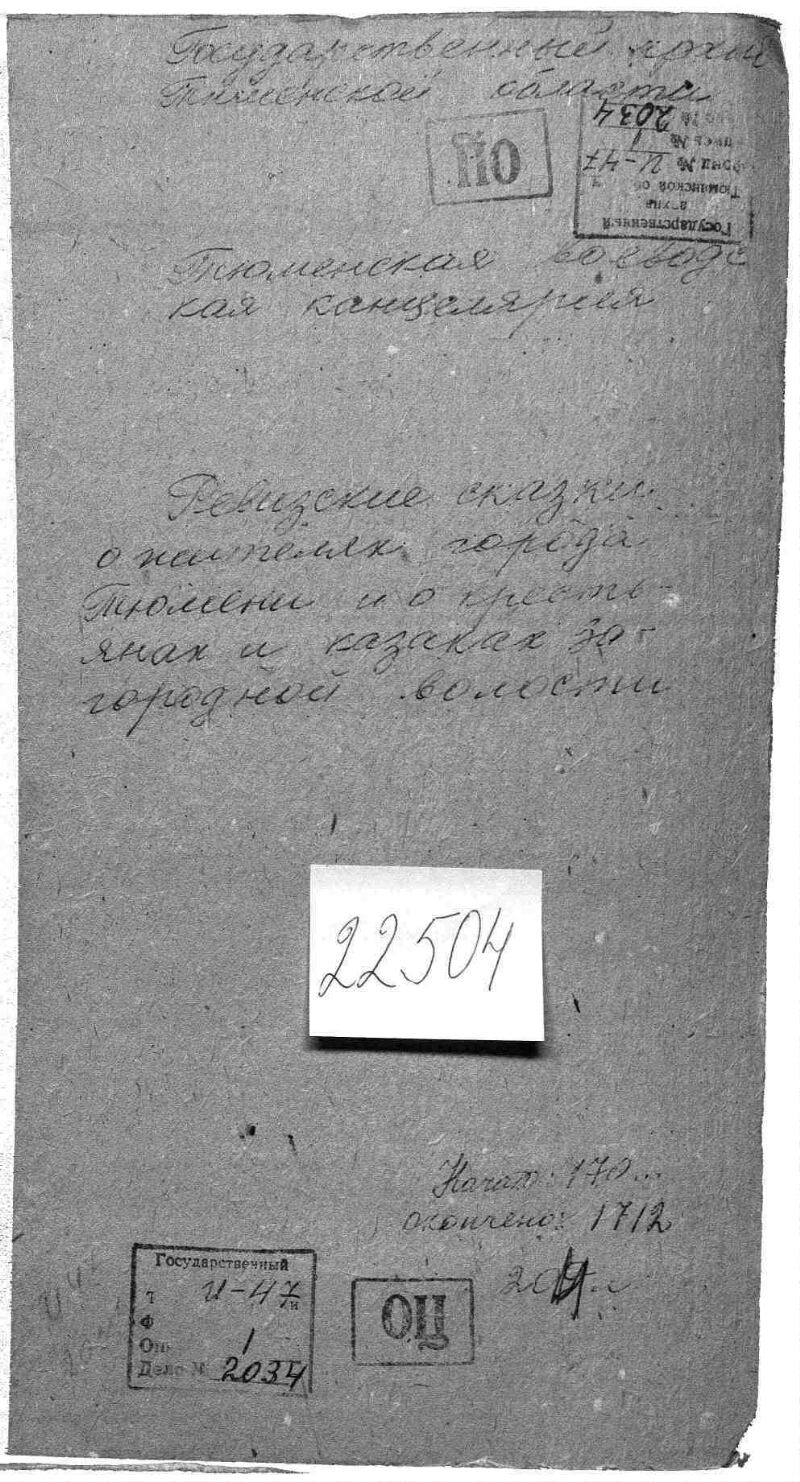 Государственный архив
Тюменской области
ОЦ
Государственный
архив
Тюменской об
Фонд № И-47
опись № 1
2034
Тюменская воеводс
кая канцелярия
Ревизские сказки
о жителях города
Тюмени и о кресть-
янах и казаках За-
городной волости
22504
Начат: 170...
окончено: 1712
204 л
Государственный
И-47
Ф
Оп 1
Дело № 2034
ОЦ